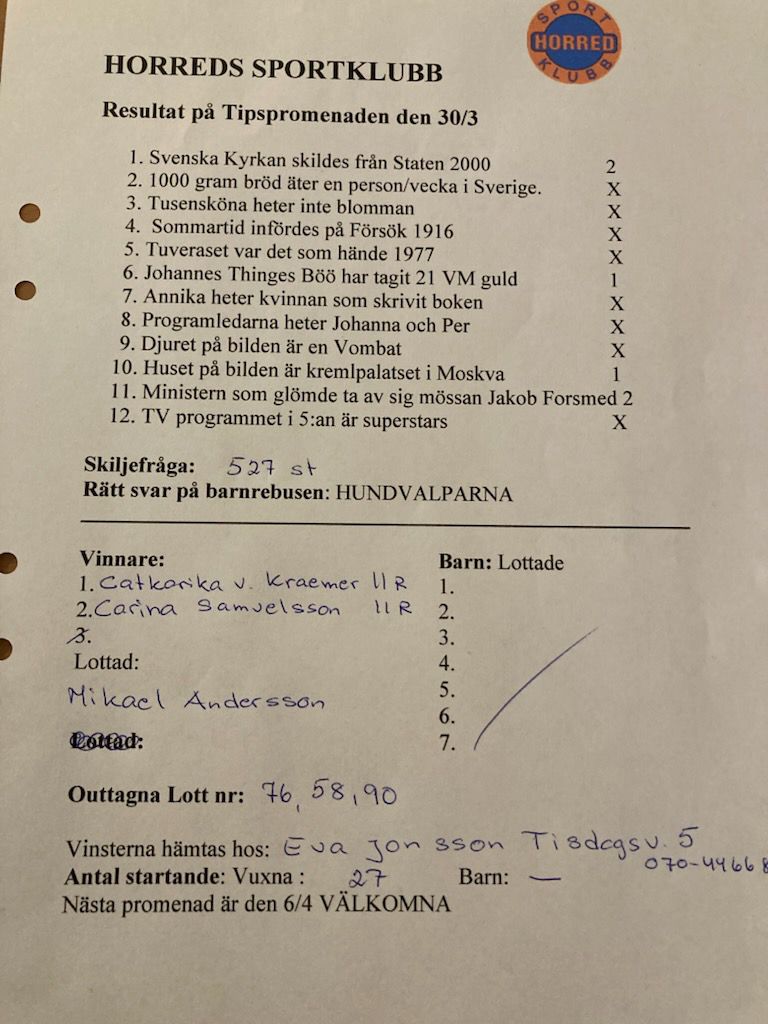 SPORT
HORRED
KLUBB
HORREDS SPORTKLUBB
Resultat på Tipspromenaden den 30/3
1. Svenska Kyrkan skildes från Staten 2000 2
2. 1000 gram bröd äter en person/vecka i Sverige. X
3. Tusensköna heter inte blomman X
4. Sommartid infördes på Försök 1916 X
5. Tuveraset var det som hände 1977 X
6. Johannes Thinges Böö har tagit 21 VM guld 1
7. Annika heter kvinnan som skrivit boken X
8. Programledarna heter Johanna och Per X
9. Djuret på bilden är en Vombat X
10. Huset på bilden är kremlpalatset i Moskva 1
11. Ministern som glömde ta av sig mössan Jakob Forsmed 2
12. TV programmet i 5:an är superstars X
Skiljefråga: 527 st
Rätt svar på barnrebusen: HUNDVALPARNA
Vinnare:
1. Catharika v. Kraemer 11 R
2. Carina Samuelsson 11 R
3.
Lottad:
Mikael Andersson
Lottad:
Barn: Lottade
1.
2.
3.
4.
5.
6.
7.
Outtagna Lott nr: 76, 58, 90
Vinsterna hämtas hos: Eva Jonsson Tisdagsv. 5
070-44668
Antal startande: Vuxna : 27 Barn: —
Nästa promenad är den 6/4 VÄLKOMNA